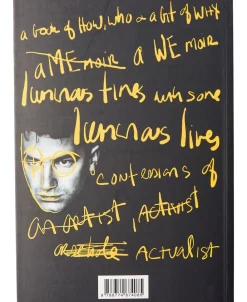 a book of HOW, WHO & a bit of WHY
a MEmoir a WE moir
luminous times with some
luminous lives
confessions of
an artist, activist
actualist
9788774074069